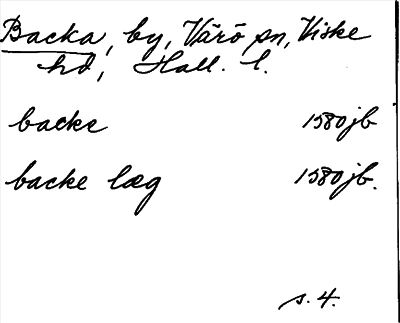 Backa, by, Värö sn, Viske
hd, Hall. l.
backe 1580 jb
backe læg 1580 jb.
s. 4.